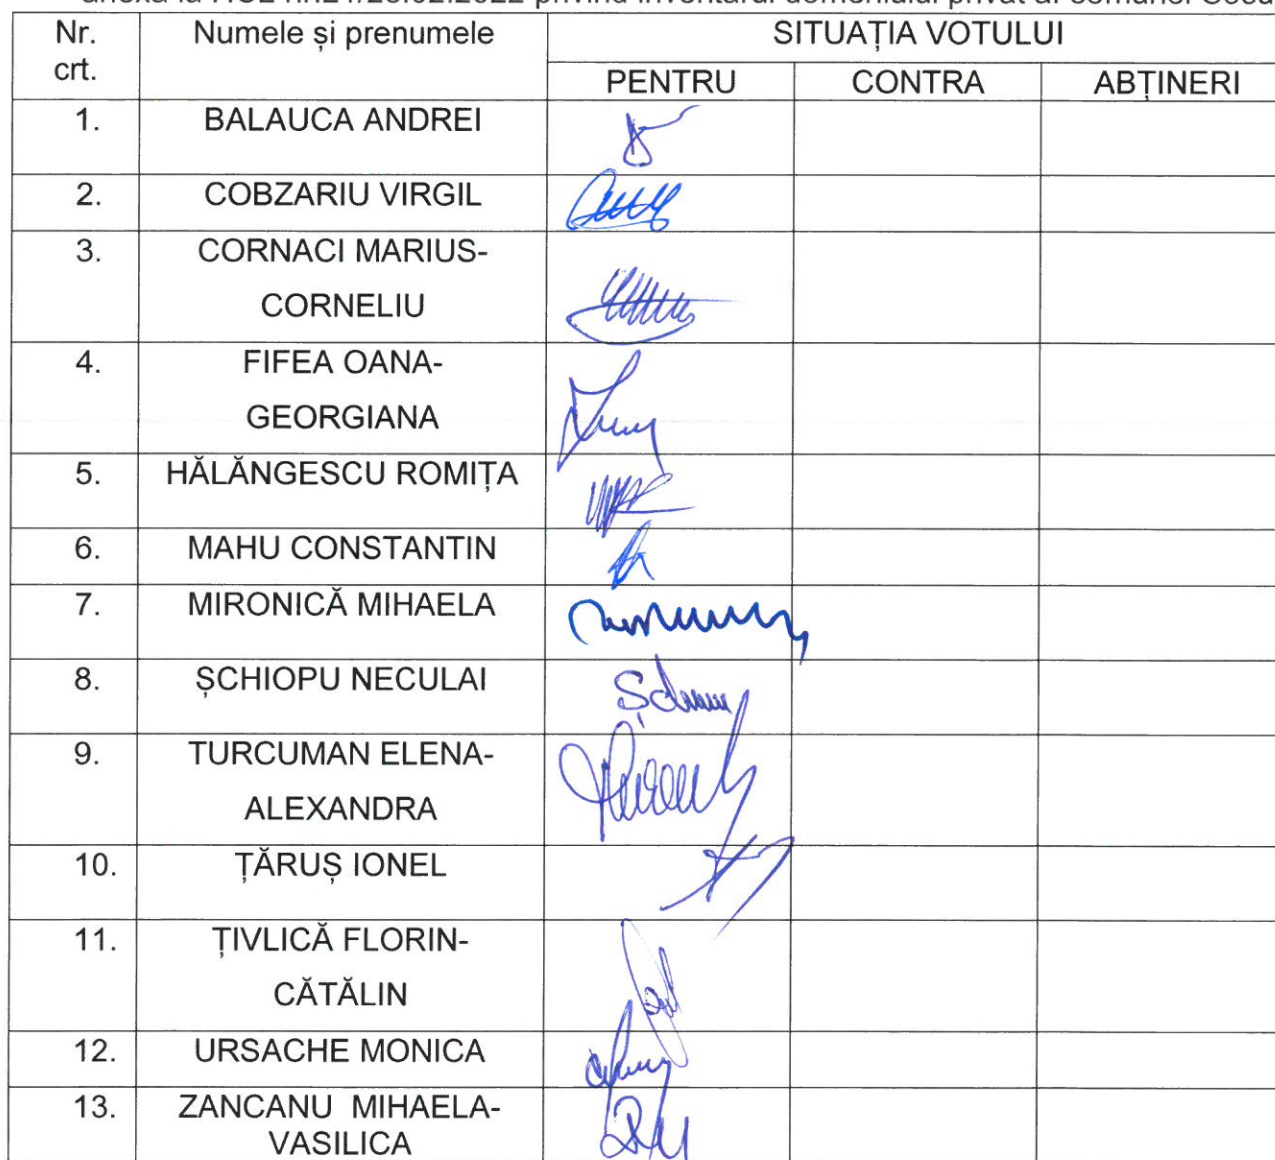 anexa la HCL nr.21/28.02.2022 privind inventarul domeniului privat al comunei
Nr. crt. Numele și prenumele SITUAȚIA VOTULUI
PENTRU CONTRA ABȚINERI
1. BALAUCA ANDREI
2. COBZARIU VIRGIL
3. CORNACI MARIUS-
CORNELIU
4. FIFEA OANA-
GEORGIANA
5. HĂLĂNGESCU ROMIȚA
6. MAHU CONSTANTIN
7. MIRONICĂ MIHAELA
8. ȘCHIOPU NECULAI
9. TURCUMAN ELENA-
ALEXANDRA
10. ȚĂRUȘ IONEL
11. ȚIVLICĂ FLORIN-
CĂTĂLIN
12. URSACHE MONICA
13. ZANCANU MIHAELA-
VASILICA